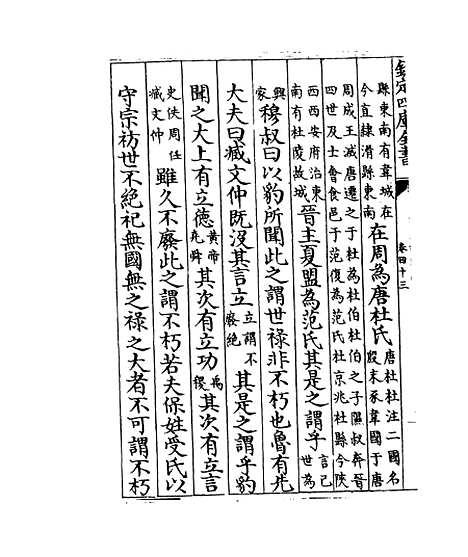 欽定四庫全書
卷四十三
縣東南有韋城在
今直隷滑縣東南
在周為唐杜氏
唐杜杜注二國名
殷末豕韋國于唐
周成王滅唐遷之于杜為杜伯杜伯之子隰叔奔晉
四世及士會食邑于范復為范氏杜京兆杜縣今陜
西西安府治東
南有杜陵故城
晉主夏盟為范氏其是之謂乎
言己
世為
興
家
穆叔曰以豹所聞此之謂世禄非不朽也魯有先
大夫曰臧文仲既沒其言立
立謂不
廢絶
其是之謂乎豹
聞之大上有立德
黄帝
堯舜
其次有立功
禹
稷
其次有立言
史佚周任
臧文仲
雖久不廢此之謂不朽若夫保姓受氏以
守宗祊世不絶祀無國無之禄之大者不可謂不朽